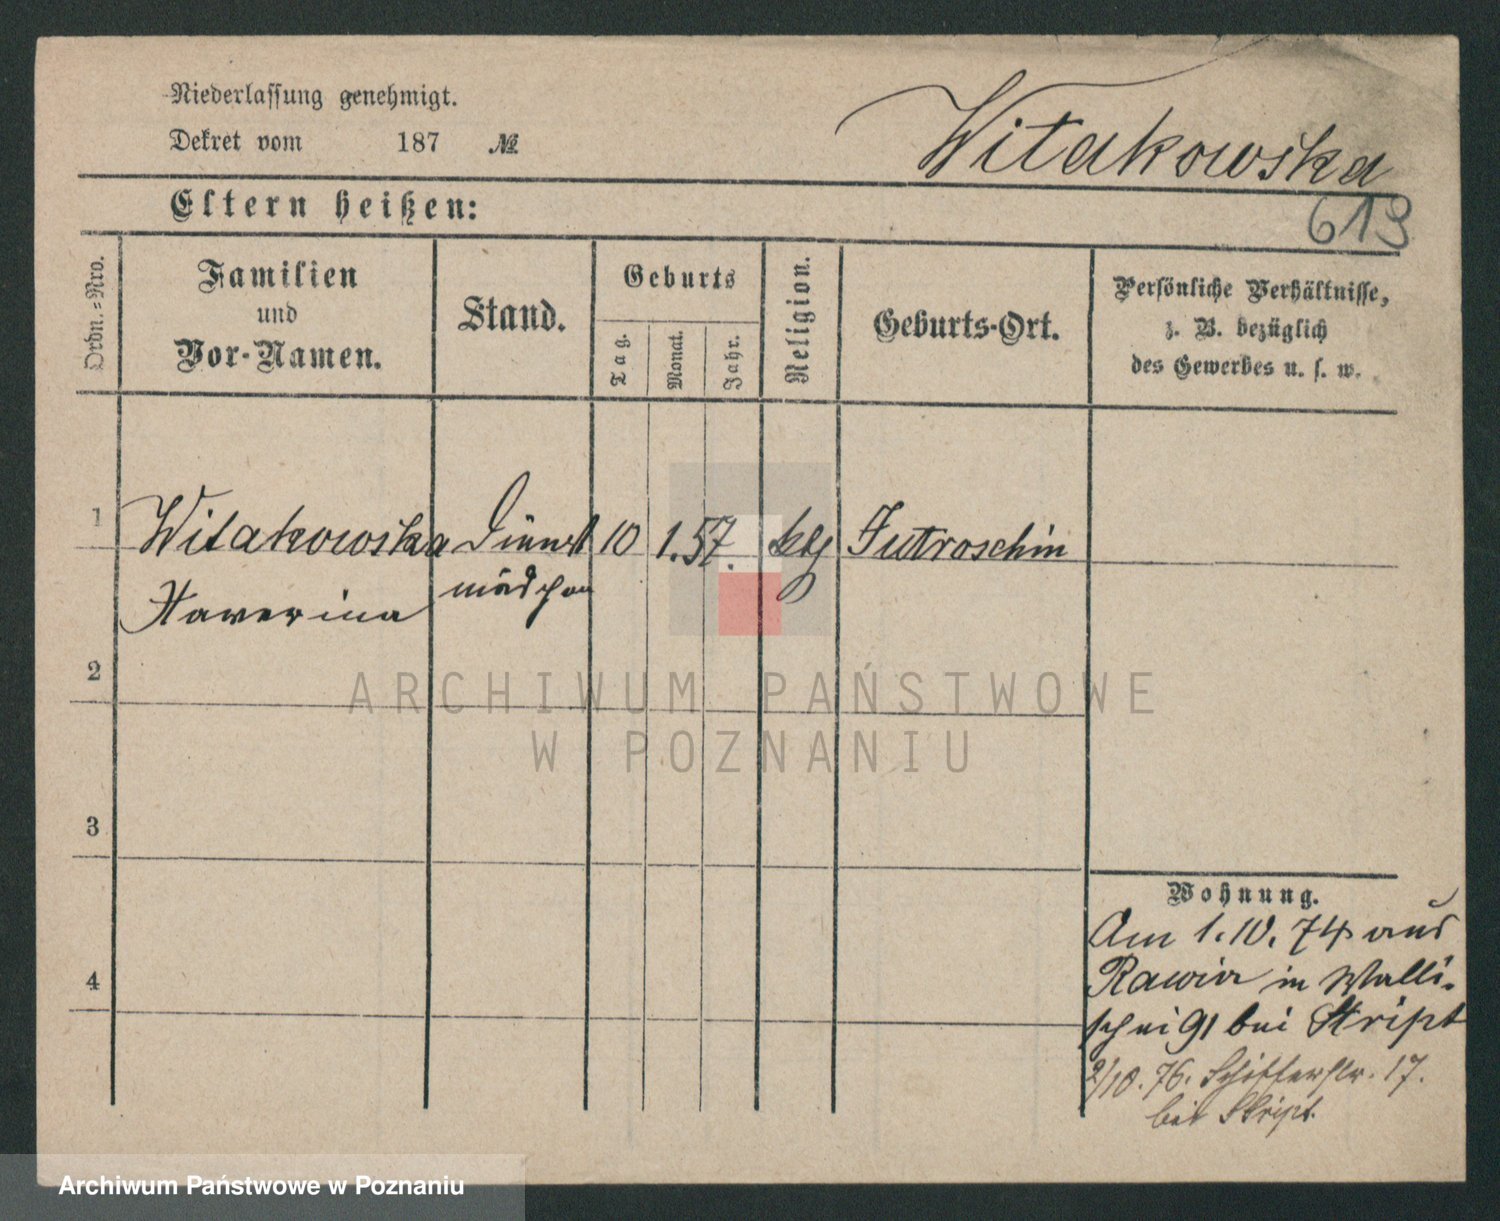 Niederlassung genehmigt.
Dekret vom 187 №
Witakowska
Eltern heißen:
619
Ordn.-Nro.
Familien
und
Vor-Namen.
Stand.
Geburts
Tag.
Monat.
Jahr.
Religion.
Geburts-Ort.
Persönliche Verhältnisse,
z. B. bezüglich
des Gewerbes u. s. w.
1 Witakowska Dienst 10 1. 57. ktg Jutroschin
Xaverina mädchen
2
3
4
Wohnung.
Am 1. 10. 74 aus
Rawicz in Walli-
schei 91 bei Skript
2/10. 76. Schifferstr. 17.
bei Skript.
ARCHIWUM PAŃSTWOWE
W POZNANIU
Archiwum Państwowe w Poznaniu